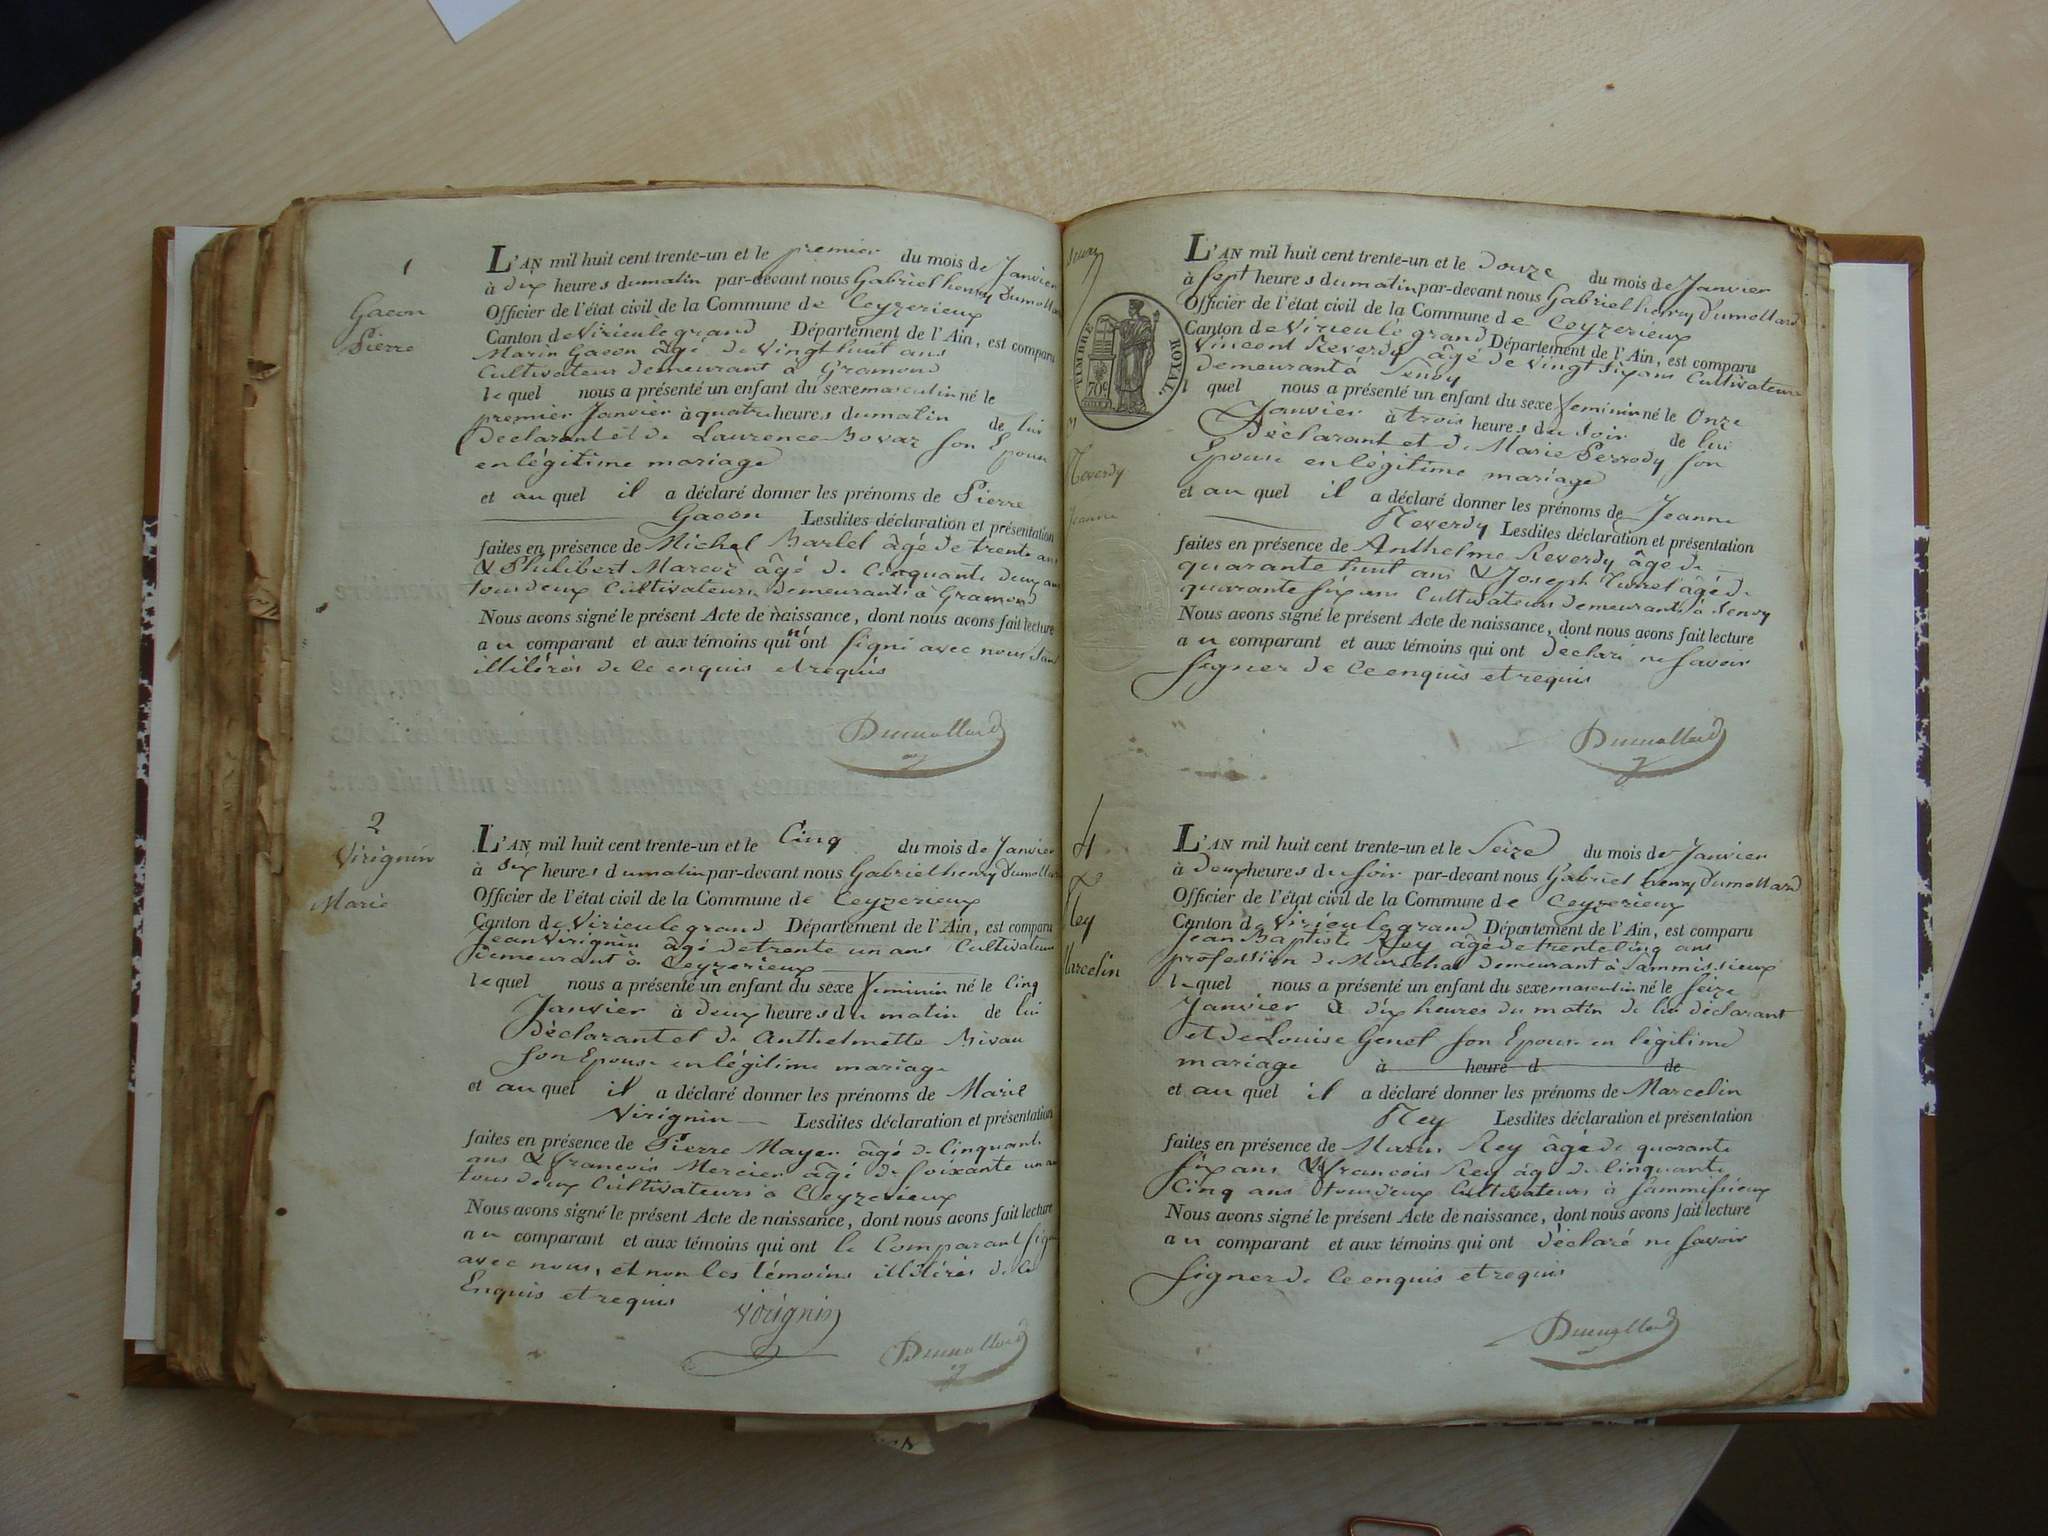 1
Gacon
Pierre
L'AN mil huit cent trente-un et le premier du mois de Janvier
à dix heures du matin par-devant nous Gabriel henry Dumollard
Officier de l'état civil de la Commune de Ceyzerieux
Canton de Virieu le grand Département de l'Ain, est comparu
Marin Gacon âgé de Vingt huit ans
Cultivateur demeurant à Gramond
lequel nous a présenté un enfant du sexe masculin né le
premier Janvier à quatre heures du matin de lui
Déclarant et de Laurence Bovaz son Epouse
en légitime mariage
et au quel il a déclaré donner les prénoms de Pierre
Gacon Lesdites déclaration et présentation
faites en présence de Michel Barlet âgé de trente ans
& Philibert Marcoz âgé de Cinquante deux ans
tous deux Cultivateurs demeurants à Gramond
Nous avons signé le présent Acte de naissance, dont nous avons fait lecture
au comparant et aux témoins qui n'ont signé avec nous
illitéres de ce enquis et requis
Dumollard
2
Virignin
Marie
L'AN mil huit cent trente-un et le Cinq du mois de Janvier
à dix heures du matin par-devant nous Gabriel henry Dumollard
Officier de l'état civil de la Commune de Ceyzerieux
Canton de Virieu le grand Département de l'Ain, est comparu
Jean Virignin âgé de trente un ans Cultivateur
demeurant à Ceyzerieux
lequel nous a présenté un enfant du sexe feminin né le Cinq
Janvier à deux heures du matin de lui
Déclarant et de Anthelmette Bivau
son Epouse en légitime mariage
et au quel il a déclaré donner les prénoms de Marie
Virignin Lesdites déclaration et présentation
faites en présence de Pierre Mayer âgé de Cinquante
ans & francois Mercier âgé de soixante un ans
tous deux Cultivateurs à Ceyzerieux
Nous avons signé le présent Acte de naissance, dont nous avons fait lecture
au comparant et aux témoins qui ont le Comparant signé
avec nous, et non les témoins illitéres de ce
Enquis et requis
Virignin
Dumollard
TIMBRE ROYAL.
70c
3
Reverdy
Jeanne
L'AN mil huit cent trente-un et le Douze du mois de Janvier
à sept heures du matin par-devant nous Gabriel henry Dumollard
Officier de l'état civil de la Commune de Ceyzerieux
Canton de Virieu le grand Département de l'Ain, est comparu
Vincent Reverdy âgé de vingt six ans Cultivateur
demeurant à Senoy
lequel nous a présenté un enfant du sexe feminin né le Onze
Janvier à trois heures du soir de lui
Déclarant et de Marie Perrody son
Epouse en légitime mariage
et au quel il a déclaré donner les prénoms de Jeanne
Reverdy Lesdites déclaration et présentation
faites en présence de Anthelme Reverdy âgé de
quarante huit ans & Joseph Turrel âgé de
quarante six ans Cultivateurs demeurants à Senoy
Nous avons signé le présent Acte de naissance, dont nous avons fait lecture
au comparant et aux témoins qui ont déclaré ne savoir
signer de ce enquis et requis
Dumollard
4
Rey
Marcelin
L'AN mil huit cent trente-un et le Seize du mois de Janvier
à deux heures du soir par-devant nous Gabriel henry Dumollard
Officier de l'état civil de la Commune de Ceyzerieux
Canton de Virieu le grand Département de l'Ain, est comparu
Jean Baptiste Rey âgé de trente cinq ans
profession de Maréchal demeurant à Sammissieux
lequel nous a présenté un enfant du sexe masculin né le seize
Janvier à dix heures du matin de lui déclarant
et de Louise Genet son Epouse en légitime
mariage à heure d de
et au quel il a déclaré donner les prénoms de Marcelin
Rey Lesdites déclaration et présentation
faites en présence de Marin Rey âgé de quarante
six ans & francois Rey âgé de cinquante
Cinq ans tous deux Cultivateurs à Sammissieux
Nous avons signé le présent Acte de naissance, dont nous avons fait lecture
au comparant et aux témoins qui ont déclaré ne savoir
signer de ce enquis et requis
Dumollard